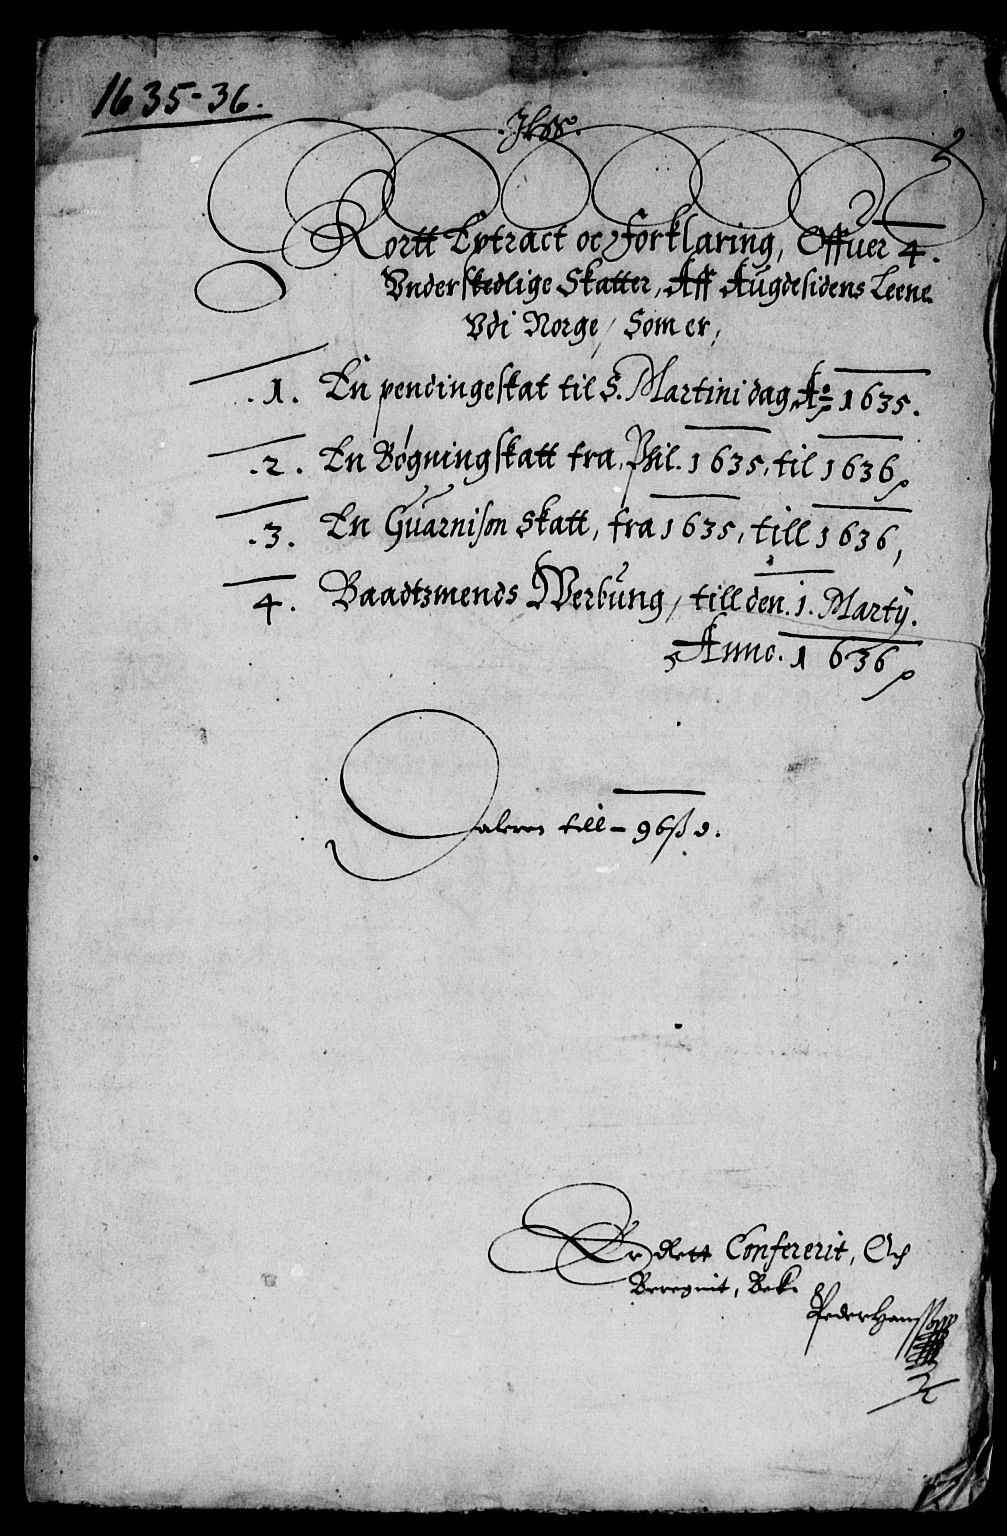 1635-36.
Kortt Extract oc Forklaring, Offuer 4.
Vnderskedlige Skatter, Aff Augdesidens Leene
Vdi Norge, Som er,
.1. En pendingeskat til S. Martini dag Ao 1635.
.2. En Bøgningskatt fra Phil. 1635, til 1636
.3. En Guarnison Skatt, fra 1635, till 1636,
4. Baadtzmends Werbung, till den. 1. Martÿ.
Anno. 1636
till - 96 ß
Er Rett Confererit, Och
Beregnit, Bek.
Peder Hanss